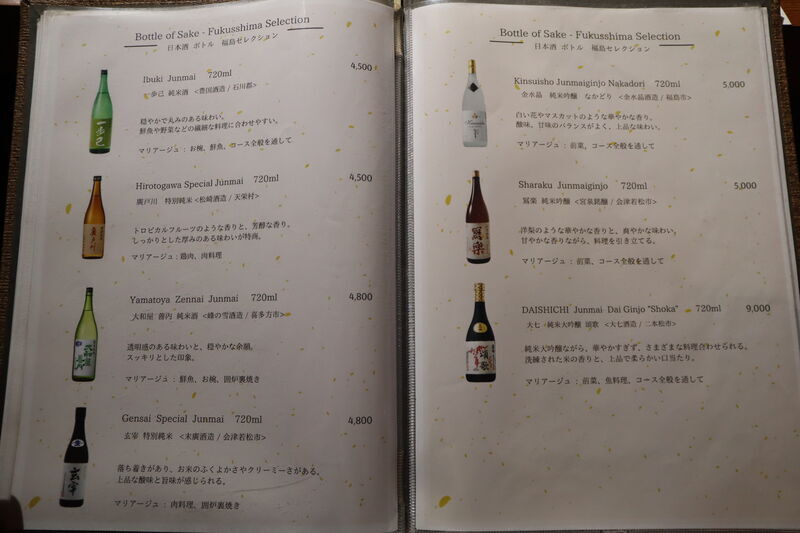 Bottle of Sake - Fukusshima Selection
日本酒 ボトル 福島セレクション
Ibuki Junmai 720ml 4,500
一歩己 純米酒 <豊国酒造 / 石川郡>
穏やかで丸みのある味わい。
鮮魚や野菜などの繊細な料理に合わせやすい。
マリアージュ : お椀、鮮魚、コース全般を通して
Hirotogawa Special Junmai 720ml 4,500
廣戸川 特別純米 <松崎酒造 / 天栄村>
トロピカルフルーツのような香りと、芳醇な香り。
しっかりとした厚みのある味わいが特徴。
マリアージュ : 鶏肉、肉料理
Yamatoya Zennai Junmai 720ml 4,800
大和屋 善内 純米酒 <峰の雪酒造 / 喜多方市>
透明感のある味わいと、穏やかな余韻。
スッキリとした印象。
マリアージュ : 鮮魚、お椀、囲炉裏焼き
Gensai Special Junmai 720ml 4,800
玄宰 特別純米 <末廣酒造 / 会津若松市>
落ち着きがあり、お米のふくよかさやクリーミーさがある。
上品な酸味と旨味が感じられる。
マリアージュ : 肉料理、囲炉裏焼き
Bottle of Sake - Fukusshima Selection
日本酒 ボトル 福島セレクション
Kinsuisho Junmaiginjo Nakadori 720ml 5,000
金水晶 純米吟醸 なかどり <金水晶酒造 / 福島市>
白い花やマスカットのような華やかな香り。
酸味、甘味のバランスがよく、上品な味わい。
マリアージュ : 前菜、コース全般を通して
Sharaku Junmaiginjo 720ml 5,000
冩楽 純米吟醸 <宮泉銘醸 / 会津若松市>
洋梨のような華やかな香りと、爽やかな味わい。
甘やかな香りながら、料理を引き立てる。
マリアージュ : 前菜、コース全般を通して
DAISHICHI Junmai Dai Ginjo "Shoka" 720ml 9,000
大七 純米大吟醸 頌歌 <大七酒造 / 二本松市>
純米大吟醸ながら、華やかすぎず、さまざまな料理合わせられる。
洗練された米の香りと、上品で柔らかい口当たり。
マリアージュ : 前菜、魚料理、コース全般を通して